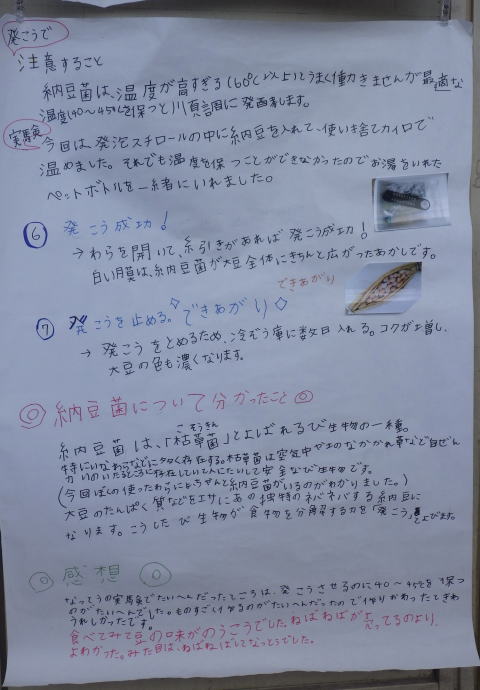 発こうで
注意すること
納豆菌は、温度が高すぎる(60℃以上)とうまく働きませんが最適な
温度(40〜45℃を保つと)順調に発酵します。
実験
今日は、発泡スチロールの中に納豆を入れて、使い捨てカイロで
温めました。それでも温度を保つことができなかったのでお湯をいれた
ペットボトルを一緒にいれました。
⑥ 発こう成功!
→わらを開いて、糸引きがあれば発こう成功!
白い膜は、納豆菌が大豆全体にきちんと広がったあかしです。
できあがり
⑦ 発こうを止める。できあがり
→ 発こうをとめるため、冷ぞう庫に数日入れる。コクが増し、
大豆の色も濃くなります。
◎納豆菌について分かったこと◎
こそうきん
納豆菌は、「枯草菌」とよばれるび生物の一種。
特にいなわらなどに多く存在する。枯草菌は空気中や土のなかかれ草など自ぜん
かいのいたるところに存在していて人にたいして安全なび生物です。
(今回ぼくの使ったわらにもちゃんと納豆菌がいるのがわかりました。)
大豆のたんぱく質などをエサにあの独特のネバネバする納豆に
なります。こうしたび生物が食物を分解する力を「発こう」とよびます。
◎ 感想 ◎
なっとうの実験でたいへんだったところは、発こうさせるのに40〜45℃を保つ
のがたいへんでした。ものすごく作るのがたいへんだったので作りおわったときわ
うれしかったです。
食べてみて豆の味がのうこうでした。ねばねばが売ってるのより、
よわかった。みた目は、ねばねばしてなっとうでした。